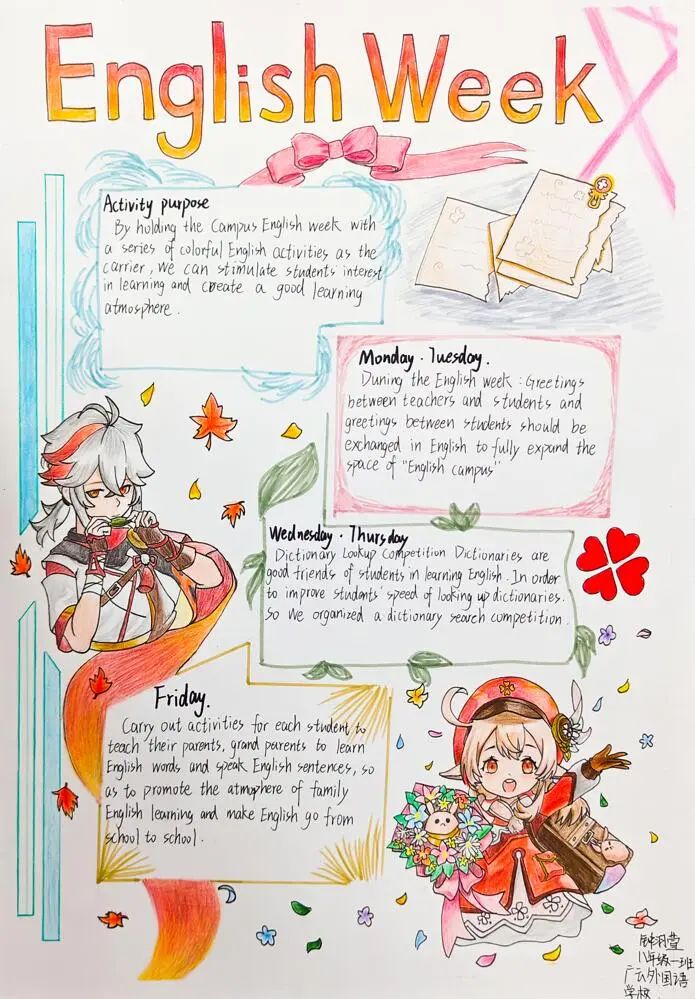 English Week
Activity purpose
By holding the Campus English week with
a series of colorful English activities as the
carrier, we can stimulate students' interest
in learning and create a good learning
atmosphere.
Monday · Tuesday.
Duning the English week : Greetings
between teachers and students and
greetings between students should be
exchanged in English to fully expand the
space of "English campus"
Wednesday · Thursday
Dictionary Lookup Competition Dictionaries are
good friends of students in learning English. In order
to improve students' speed of looking up dictionaries.
So we organized a dictionary search competition.
Friday.
Carry out activities for each student to
teach their parents, grand parents to learn
English words and speak English sentences, so
as to promote the atmophere of family
English learning and make English go from
school to school.
八年级一班
外国语
学校